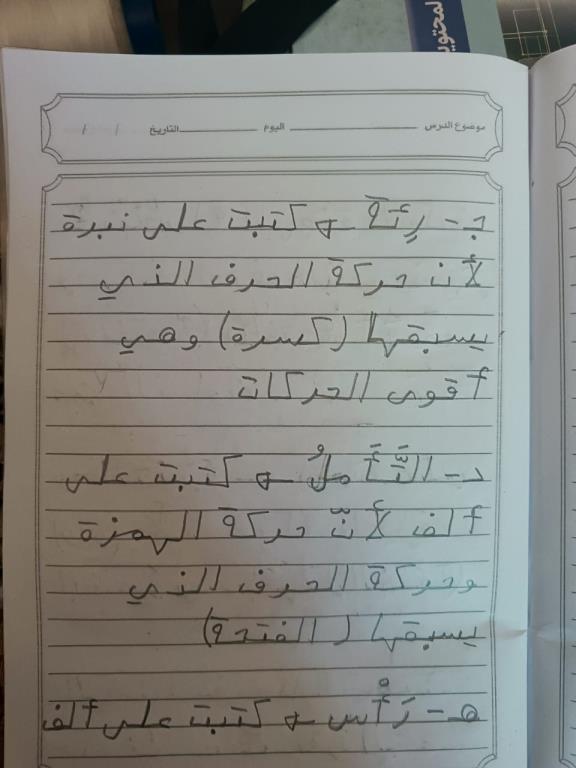 المحتويا
موضوع الدرس ـــــــــــــ اليوم ـــــــــــــ التاريخ / /
جـ - رِئَة → كتبت على نبرة
لأن حركة الحرف الذي
يسبقها (كسرة) وهي
أقوى الحركات
د - التَّأَملُ → كتبت على
ألف لأنّ حركة الهمزة
وحركة الحرف الذي
يسبقها (الفتحة)
هـ - رَأْس → كتبت على ألف